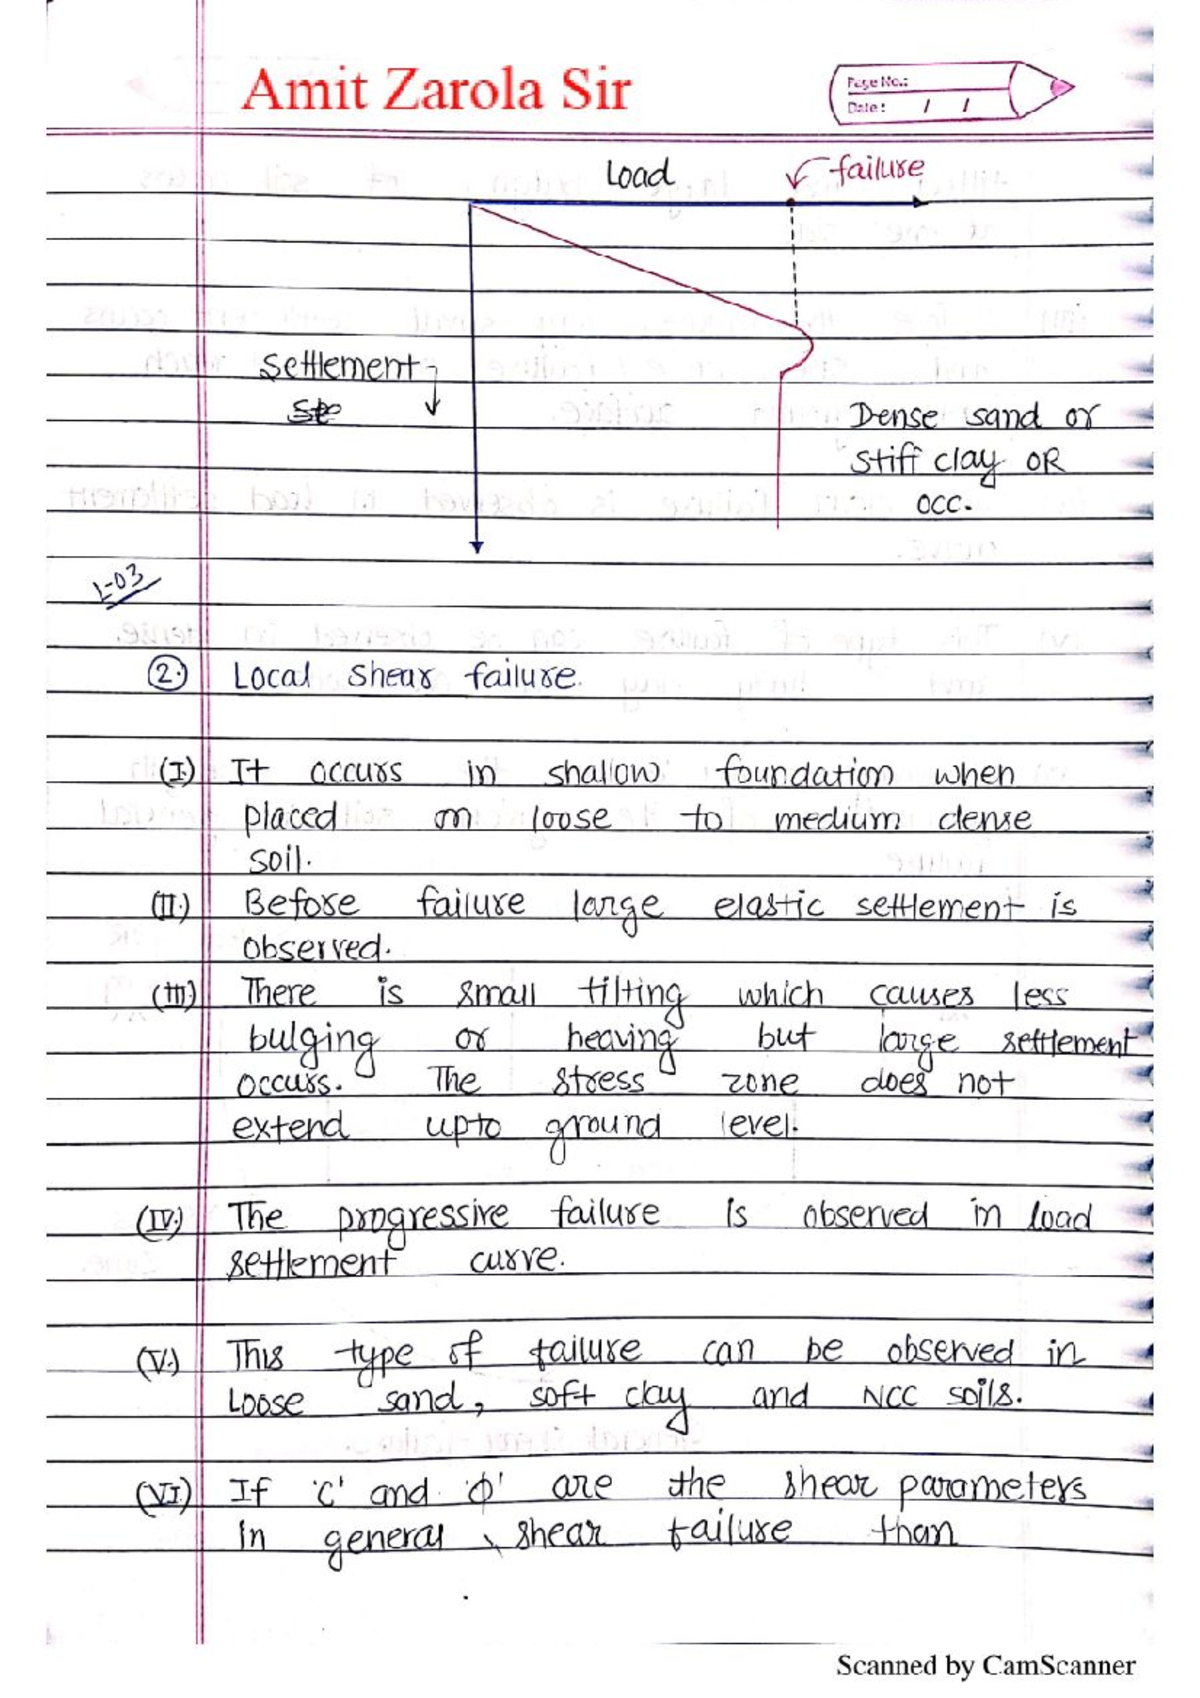 Amit Zarola Sir
Page No.:
Date: / /
Load
failure
Settlement
Dense sand or
stiff clay OR
OCC.
L-03
2. Local Shear failure.
(I.) It occurs in shallow foundation when
placed on loose to medium dense
soil.
(II.) Before failure large elastic settlement is
observed.
(III) There is small tilting which causes less
bulging or heaving but large settlement
occurs. The stress zone does not
extend upto ground level.
(IV.) The progressive failure is observed in load
settlement curve.
(V.) This type of failure can be observed in
Loose sand, soft clay and NCC soils.
(VI.) If 'C' and 'ϕ' are the shear parameters
in general shear failure than
Scanned by CamScanner